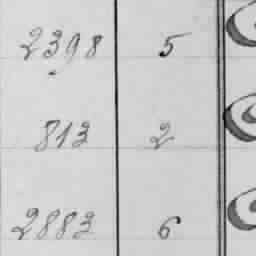 2398 5
813 2
2883 6